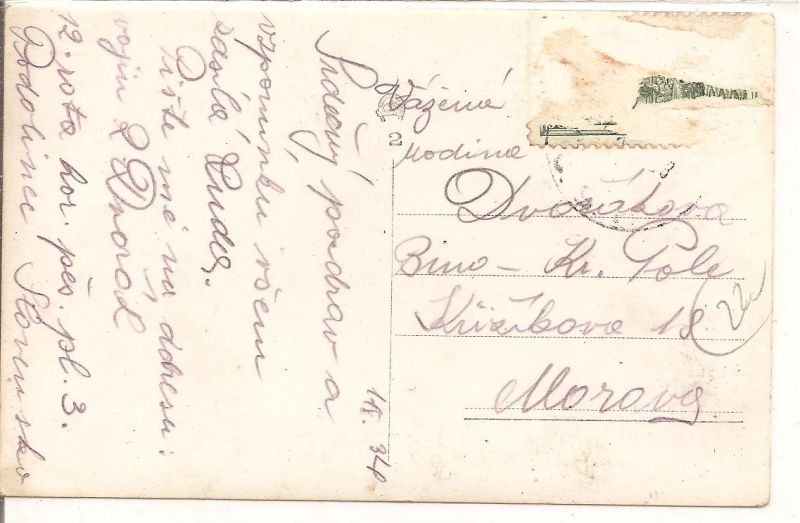 Srdečný pozdrav a
vzpomínku všem
zasílá Luda.
Pište mě na adresu:
voj. L Dvořák
12. rota hor. pěš. pl. 3.
Podolinec Slovensko
34
2
Vážená
rodina
Dvořákova
Brno - Kr. Pole
Křižíkova 18
Morava
22